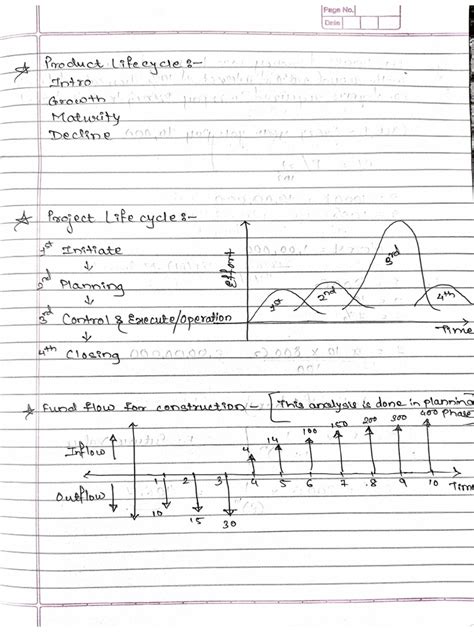 Page No.
Date
☆ Product Lifecycle :-
Intro
Growth
Maturity
Decline
☆ Project Life cycle :-
1st Initiate
↓
2nd Planning
↓
3rd Control & Execute/Operation
↓
4th Closing
Effort
1st 2nd 3rd 4th
Time
☆ Fund flow for construction - [This analysis is done in planning Phase
Inflow
4 14 100 150 200 300 400
1 2 3 4 5 6 7 8 9 10 Time
Outflow
10 15 30